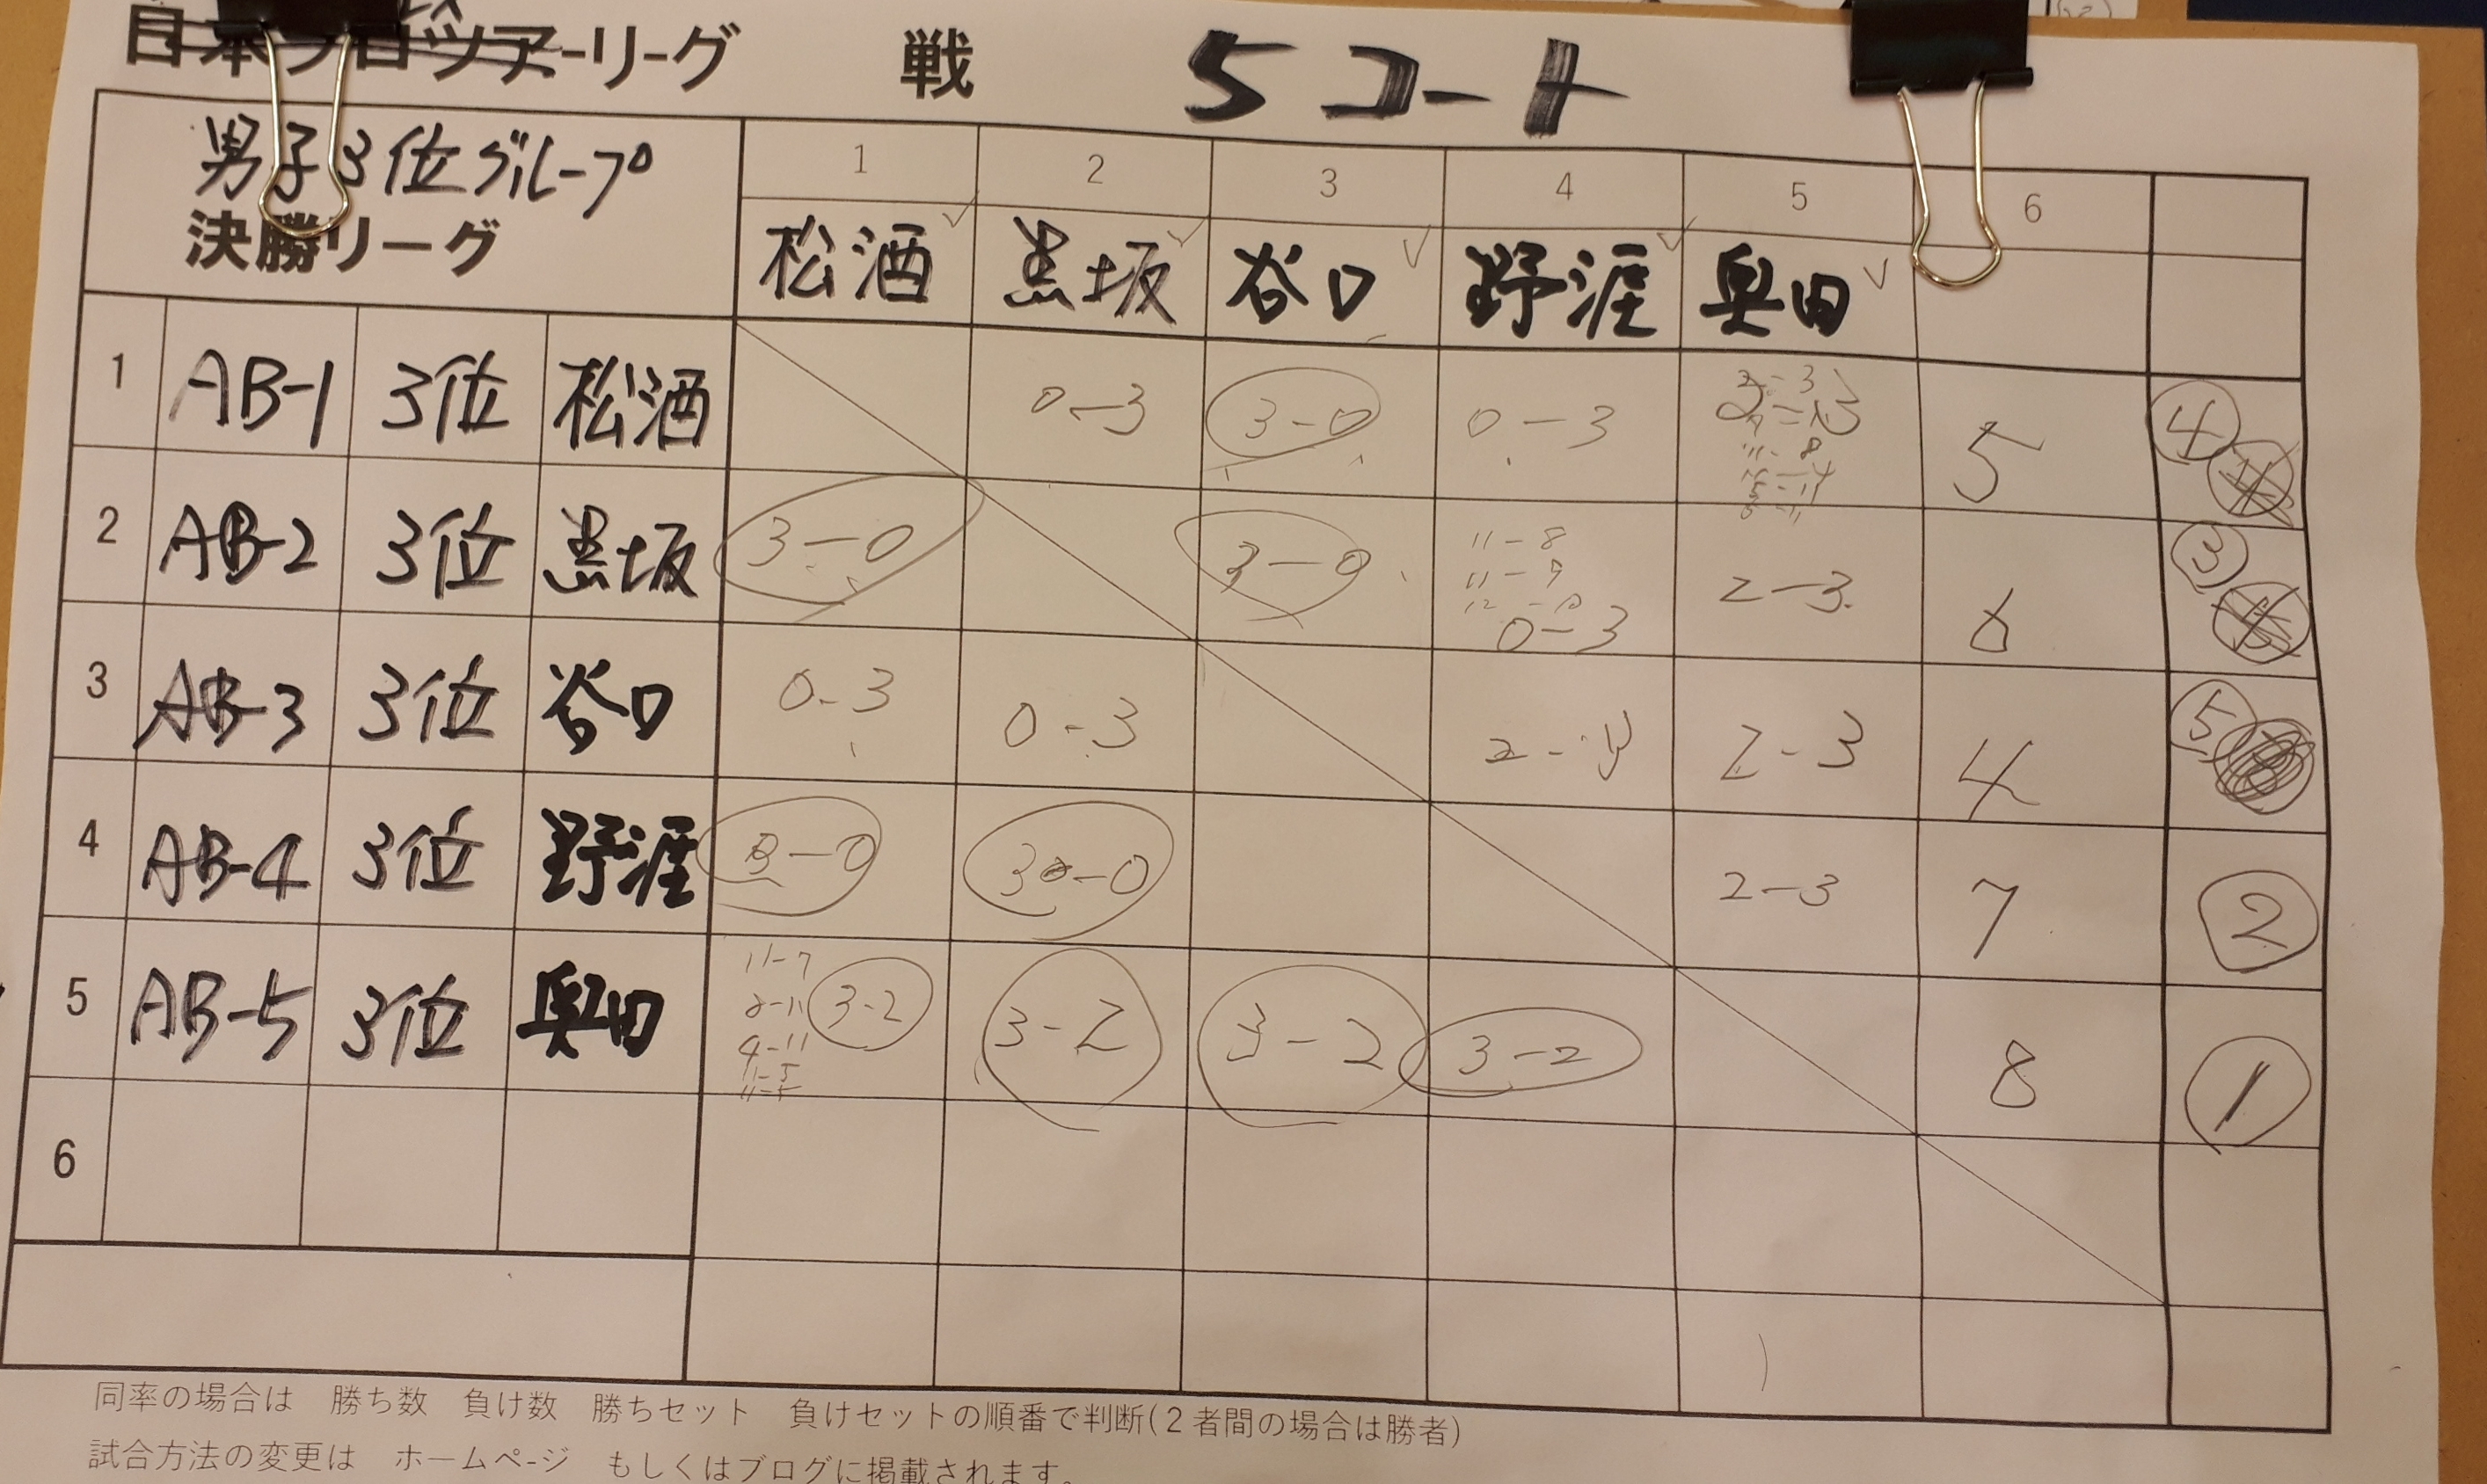 日本プロツアーリーグ 戦 5コート
男子3位グループ
決勝リーグ
1 2 3 4 5 6
松酒 黒坂 谷口 野涯 奥田
1 AB-1 3位 松酒 0-3 3-0 0-3 5 4
2 AB-2 3位 黒坂 3-0 3-0 11-8 11-9 12-10 0-3 2-3 6 3
3 AB-3 3位 谷口 0-3 0-3 2-3 2-3 4 5
4 AB-4 3位 野涯 3-0 3-0 2-3 7 2
5 AB-5 3位 奥田 11-7 3-2 3-2 3-2 3-2 8 1
6
同率の場合は 勝ち数 負け数 勝ちセット 負けセットの順番で判断(2者間の場合は勝者)
試合方法の変更は ホームページ もしくはブログに掲載されます。